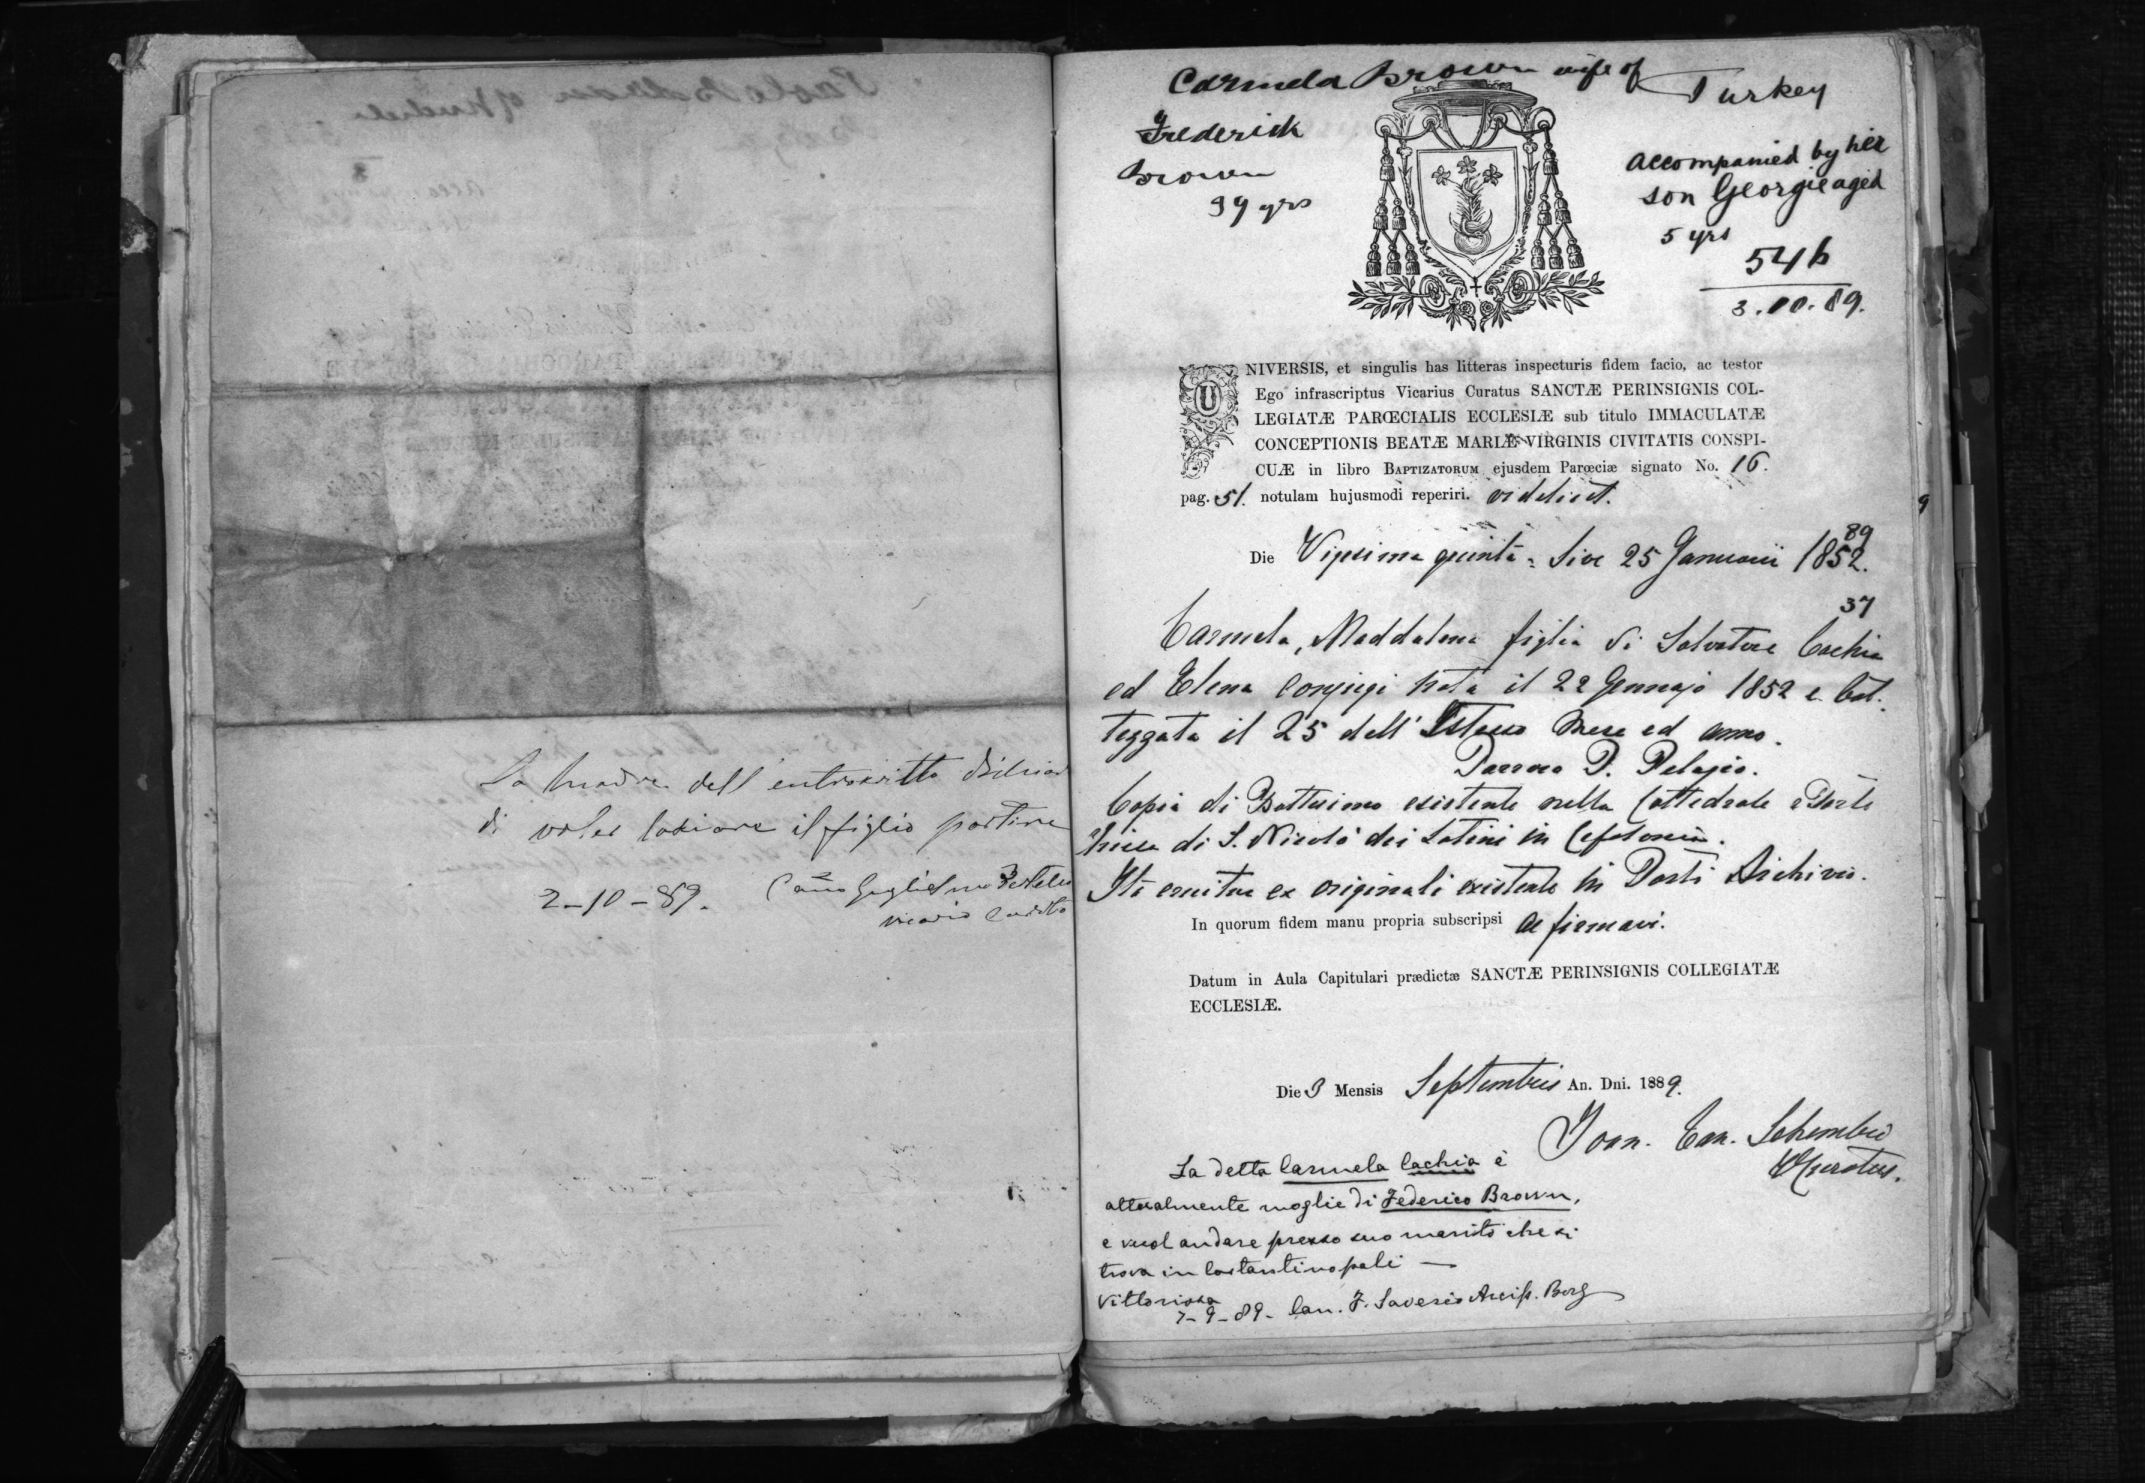 La madre dell'entroscritto dichiara
di voler lasciare il figlio partire
2-10-89.
Vicario Curato
Carmela Brown wife of
Turkey
Frederick
Brown
39 yrs
accompanied by her
son Georgie aged
5 yrs
546
3.10.89.
UNIVERSIS, et singulis has litteras inspecturis fidem facio, ac testor
Ego infrascriptus Vicarius Curatus SANCTÆ PERINSIGNIS COL-
LEGIATÆ PARŒCIALIS ECCLESIÆ sub titulo IMMACULATÆ
CONCEPTIONIS BEATÆ MARIÆ VIRGINIS CIVITATIS CONSPI-
CUÆ in libro BAPTIZATORUM ejusdem Parœciæ signato No. 16.
pag. 51. notulam hujusmodi reperiri. videlicet.
89
Die Vigesima quinta = sive 25 Januarii 1852.
37
Carmela, Maddalena figlia di Salvatore Cachia
ed Elena conjugi nata il 22 Gennajo 1852 e bat-
tezzata il 25 dell'istesso mese ed anno.
Parroco P. Pelagio.
Copia di Battesimo esistente nella Cattedrale e Parle
Chiesa di S. Nicolò dei Latini in Cefalonia.
Ita eruitur ex originali existente in Parti Archivio.
In quorum fidem manu propria subscripsi ac firmavi.
Datum in Aula Capitulari prædictæ SANCTÆ PERINSIGNIS COLLEGIATÆ
ECCLESIÆ.
Die 3 Mensis Septembris An. Dni. 1889.
Joan. Can. Schembri
V. Curatus.
La detta Carmela Cachia è
attualmente moglie di Federico Brown,
e vuol andare presso suo marito che si
trova in Costantinopoli —
Vittoriosa
7-9-89- Can. F. Saverio Arcip. Borg